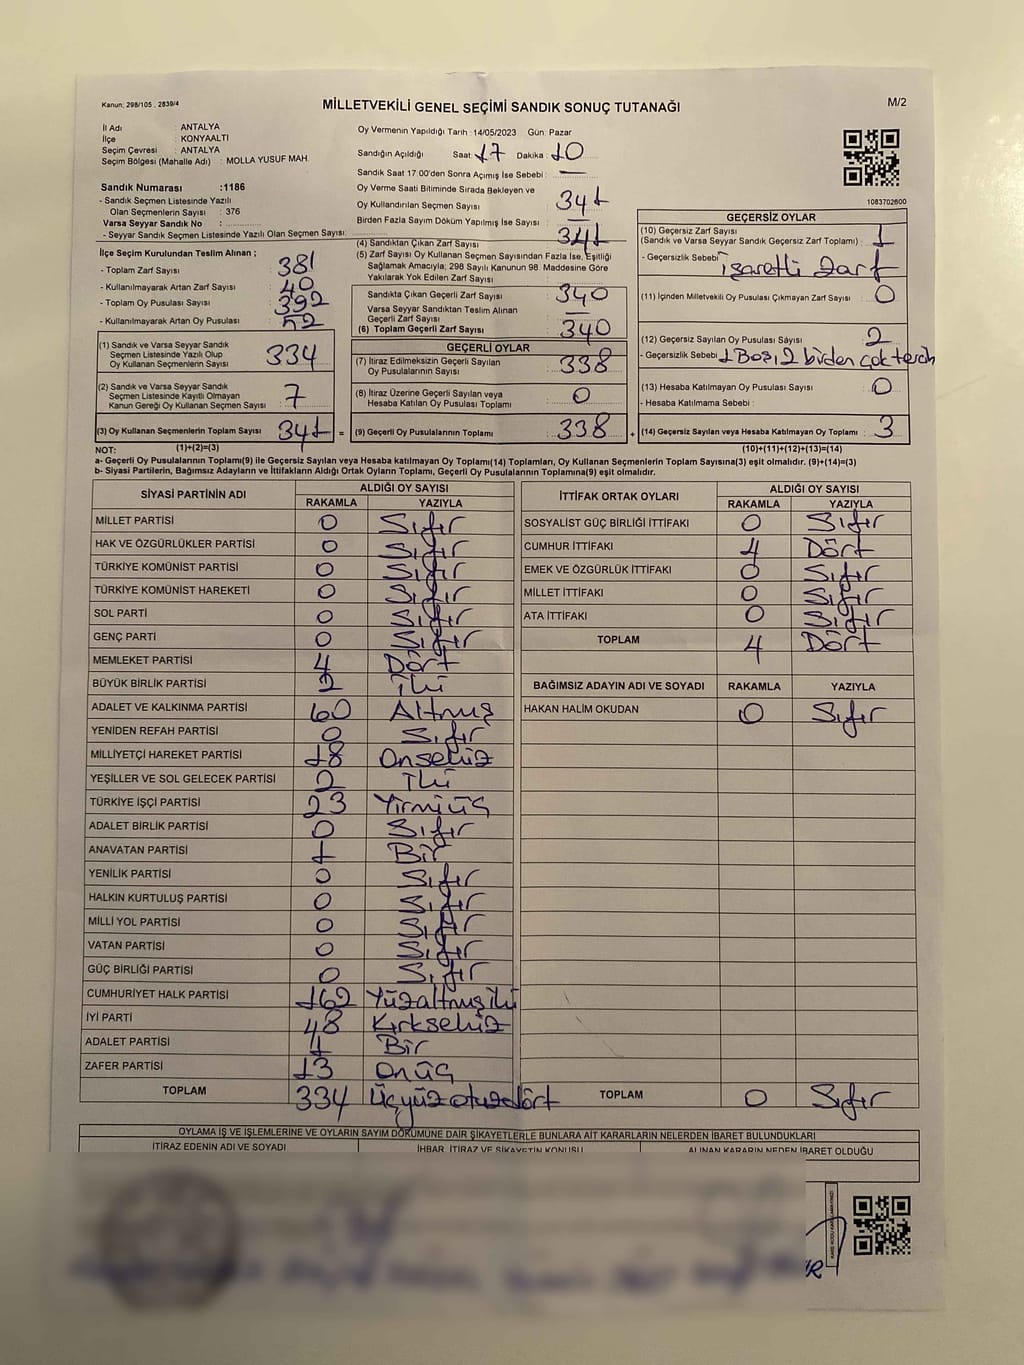 Kanun; 298/105 , 2839/4
MİLLETVEKİLİ GENEL SEÇİMİ SANDIK SONUÇ TUTANAĞI
M/2
İl Adı : ANTALYA
İlçe : KONYAALTI
Seçim Çevresi : ANTALYA
Seçim Bölgesi (Mahalle Adı) : MOLLA YUSUF MAH.
Sandık Numarası :1186
- Sandık Seçmen Listesinde Yazılı
Olan Seçmenlerin Sayısı : 376
Varsa Seyyar Sandık No :
- Seyyar Sandık Seçmen Listesinde Yazılı Olan Seçmen Sayısı:
Oy Vermenin Yapıldığı Tarih :14/05/2023 Gün: Pazar
Sandığın Açıldığı Saat: 17 Dakika: 10
Sandık Saat 17.00'den Sonra Açımış İse Sebebi : —
Oy Verme Saati Bitiminde Sırada Bekleyen ve
Oy Kullandırılan Seçmen Sayısı : 341
Birden Fazla Sayım Döküm Yapılmış İse Sayısı : —
1083702600
İlçe Seçim Kurulundan Teslim Alınan ;
- Toplam Zarf Sayısı : 381
- Kullanılmayarak Artan Zarf Sayısı : 40
- Toplam Oy Pusulası Sayısı : 392
- Kullanılmayarak Artan Oy Pusulası : 52
(1) Sandık ve Varsa Seyyar Sandık
Seçmen Listesinde Yazılı Olup
Oy Kullanan Seçmenlerin Sayısı : 334
(2) Sandık ve Varsa Seyyar Sandık
Seçmen Listesinde Kayıtlı Olmayan
Kanun Gereği Oy Kullanan Seçmen Sayısı : 7
(3) Oy Kullanan Seçmenlerin Toplam Sayısı : 341 =
(4) Sandıktan Çıkan Zarf Sayısı : 341
(5) Zarf Sayısı Oy Kullanan Seçmen Sayısından Fazla İse, Eşitliği
Sağlamak Amacıyla; 298 Sayılı Kanunun 98. Maddesine Göre
Yakılarak Yok Edilen Zarf Sayısı :
Sandıkta Çıkan Geçerli Zarf Sayısı : 340
Varsa Seyyar Sandıktan Teslim Alınan
Geçerli Zarf Sayısı : —
(6) Toplam Geçerli Zarf Sayısı : 340
GEÇERLİ OYLAR
(7) İtiraz Edilmeksizin Geçerli Sayılan
Oy Pusulalarının Sayısı : 338
(8) İtiraz Üzerine Geçerli Sayılan veya
Hesaba Katılan Oy Pusulası Toplamı : 0
(9) Geçerli Oy Pusulalarının Toplamı : 338 +
GEÇERSİZ OYLAR
(10) Geçersiz Zarf Sayısı
(Sandık ve Varsa Seyyar Sandık Geçersiz Zarf Toplamı) : 1
- Geçersizlik Sebebi : işaretli zarf
(11) İçinden Milletvekili Oy Pusulası Çıkmayan Zarf Sayısı : 0
(12) Geçersiz Sayılan Oy Pusulası Sayısı : 2
- Geçersizlik Sebebi : 1 Boş, 2 birden çok tercih
(13) Hesaba Katılmayan Oy Pusulası Sayısı : 0
- Hesaba Katılmama Sebebi :
(14) Geçersiz Sayılan veya Hesaba Katılmayan Oy Toplamı : 3
NOT: (1)+(2)=(3) (10)+(11)+(12)+(13)=(14)
a- Geçerli Oy Pusulalarının Toplamı(9) ile Geçersiz Sayılan veya Hesaba Katılmayan Oy Toplamı(14) Toplamları, Oy Kullanan Seçmenlerin Toplam Sayısına(3) eşit olmalıdır. (9)+(14)=(3)
b- Siyasi Partilerin, Bağımsız Adayların ve İttifakların Aldığı Ortak Oyların Toplamı, Geçerli Oy Pusulalarının Toplamına(9) eşit olmalıdır.
SİYASİ PARTİNİN ADI ALDIĞI OY SAYISI
RAKAMLA YAZIYLA
MİLLET PARTİSİ 0 Sıfır
HAK VE ÖZGÜRLÜKLER PARTİSİ 0 Sıfır
TÜRKİYE KOMÜNİST PARTİSİ 0 Sıfır
TÜRKİYE KOMÜNİST HAREKETİ 0 Sıfır
SOL PARTİ 0 Sıfır
GENÇ PARTİ 0 Sıfır
MEMLEKET PARTİSİ 4 Dört
BÜYÜK BİRLİK PARTİSİ 2 İki
ADALET VE KALKINMA PARTİSİ 60 Altmış
YENİDEN REFAH PARTİSİ 0 Sıfır
MİLLİYETÇİ HAREKET PARTİSİ 18 Onsekiz
YEŞİLLER VE SOL GELECEK PARTİSİ 2 İki
TÜRKİYE İŞÇİ PARTİSİ 23 Yirmiüç
ADALET BİRLİK PARTİSİ 0 Sıfır
ANAVATAN PARTİSİ 1 Bir
YENİLİK PARTİSİ 0 Sıfır
HALKIN KURTULUŞ PARTİSİ 0 Sıfır
MİLLİ YOL PARTİSİ 0 Sıfır
VATAN PARTİSİ 0 Sıfır
GÜÇ BİRLİĞİ PARTİSİ 0 Sıfır
CUMHURİYET HALK PARTİSİ 162 Yüzaltmışiki
İYİ PARTİ 48 Kırksekiz
ADALET PARTİSİ 1 Bir
ZAFER PARTİSİ 13 Onüç
TOPLAM 334 Üçyüzotuzdört
İTTİFAK ORTAK OYLARI ALDIĞI OY SAYISI
RAKAMLA YAZIYLA
SOSYALİST GÜÇ BİRLİĞİ İTTİFAKI 0 Sıfır
CUMHUR İTTİFAKI 4 Dört
EMEK VE ÖZGÜRLÜK İTTİFAKI 0 Sıfır
MİLLET İTTİFAKI 0 Sıfır
ATA İTTİFAKI 0 Sıfır
TOPLAM 4 Dört
BAĞIMSIZ ADAYIN ADI VE SOYADI RAKAMLA YAZIYLA
HAKAN HALİM OKUDAN 0 Sıfır
TOPLAM 0 Sıfır
OYLAMA İŞ VE İŞLEMLERİNE VE OYLARIN SAYIM DÖKÜMÜNE DAİR ŞİKAYETLERLE BUNLARA AİT KARARLARIN NELERDEN İBARET BULUNDUKLARI
İTİRAZ EDENİN ADI VE SOYADI İHBAR, İTİRAZ VE ŞİKAYETİN KONUSU ALINAN KARARIN NEDEN İBARET OLDUĞU